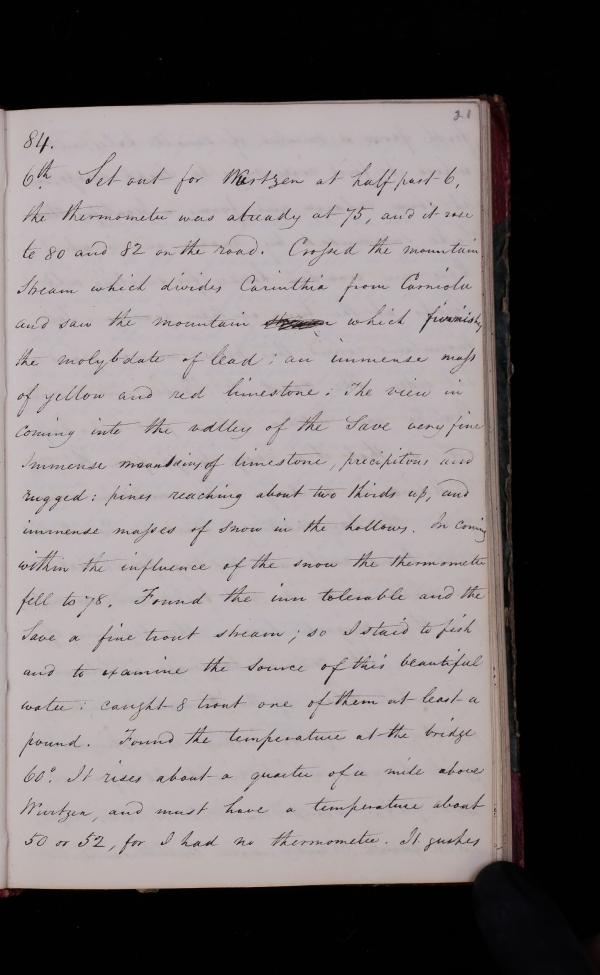 21
84.
6th. Set out for Wurtzen at half past 6,
the thermometer was already at 75, and it rose
to 80 and 82 on the road. Crossed the mountain
Stream which divides Carinthia from Carniola
and saw the mountain which furnishes
the molybdate of lead: an immense mass
of yellow and red limestone: The view in
coming into the valley of the Save very fine
Immense mountains of limestone, precipitous and
rugged: pines reaching about two thirds up, and
immense masses of snow in the hollows. In coming
within the influence of the snow the thermometer
fell to 78. Found the inn tolerable and the
Save a fine trout stream; so I staid to fish
and to examine the source of this beautiful
water: caught 8 trout one of them at least a
pound. Found the temperature at the bridge
60°. It rises about a quarter of a mile above
Wurtzen, and must have a temperature about
50 or 52, for I had no thermometer. It gushes